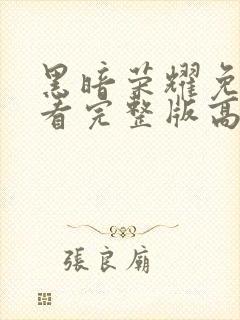 黑暗荣耀免
看完整版高
張良廟